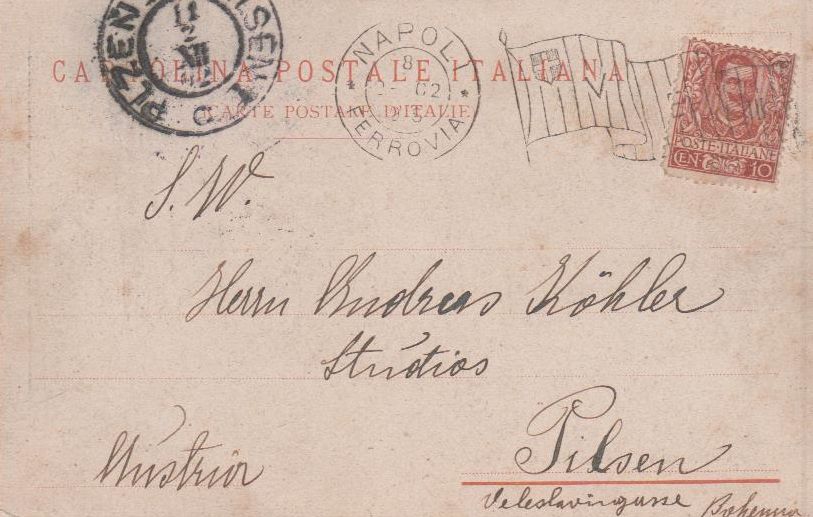 PLZEN PILSEN 1
11
2
XII
02
C
NAPOLI
8
02
FERROVIA
CARTOLINA POSTALE ITALIANA
(CARTE POSTALE D'ITALIE)
POSTE·ITALIANE
CEN. 10
S. W.
Herrn Andreas Köhler
Studios
Austria
Pilsen
Veleslavingasse Bohemia